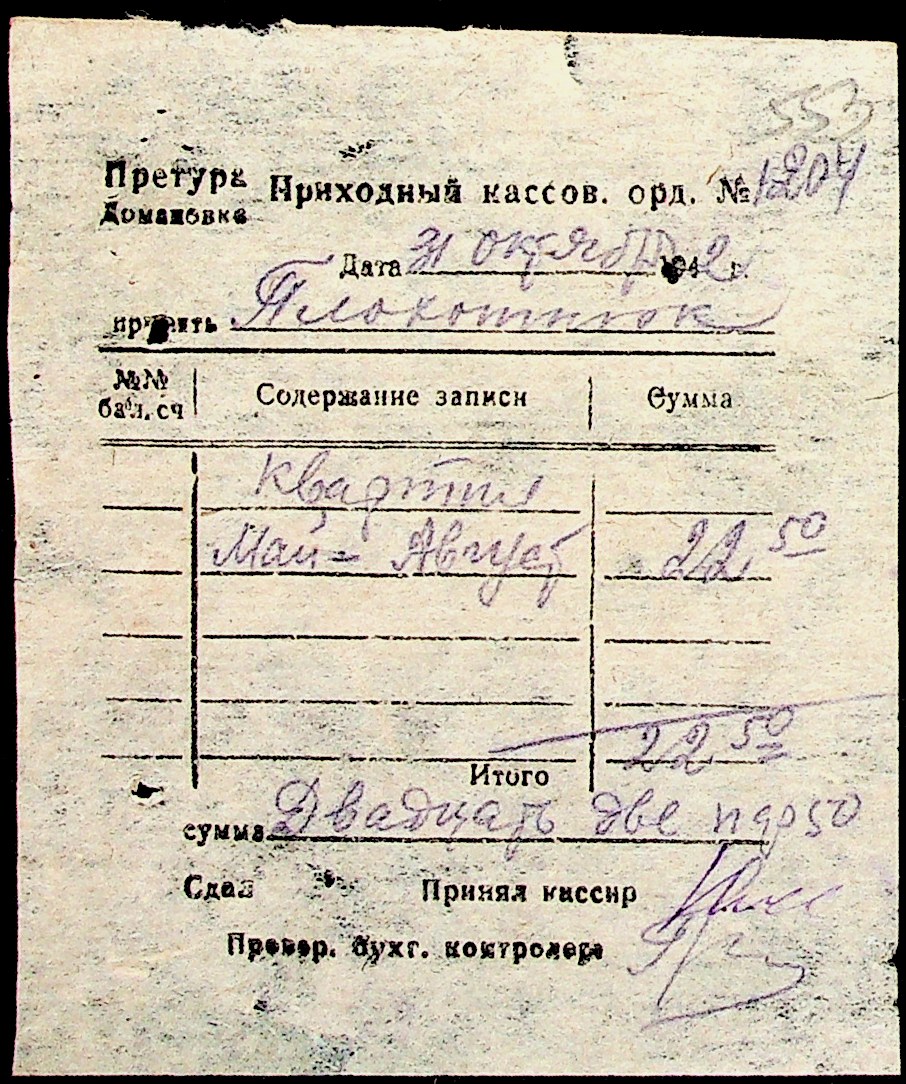 553
Претура Приходный кассов. орд. № 1204
Домановка
Дата 31 октября 1942 г.
принять Плохотнюк
№№ бал. сч Содержание записи Сумма
Квартпл
Май - Август 22 50
22 50
Итого
сумма Двадцать две пф 50
Сдал Принял кассир
Провер. бухг. контролера